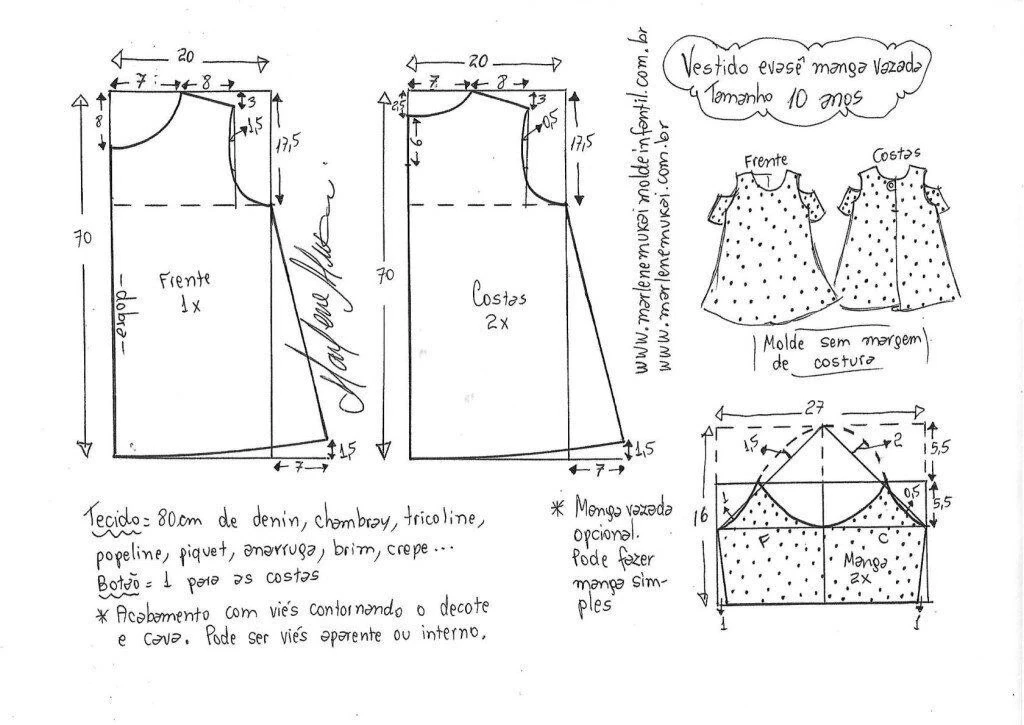 20
7
8
3
8
1,5
17,5
70
Frente
1x
-dobra-
1,5
7
20
7
8
2,5
3
6
0,5
17,5
70
Costas
2x
1,5
7
www.marlenemukaimoldeinfantil.com.br
www.marlenemukai.com.br
Vestido evasê manga vazada
Tamanho 10 anos
Frente
Costas
Molde sem margem
de costura
27
1,5
2
5,5
16
1
0,5
5,5
F
C
Manga
2x
1
1
Tecido = 80cm de denin, chambray, tricoline,
popeline, piquet, anarruga, brim, crepe...
Botão = 1 para as costas
* Acabamento com viés contornando o decote
e cava. Pode ser viés aparente ou interno.
* Manga vazada
opcional.
Pode fazer
manga sim-
ples